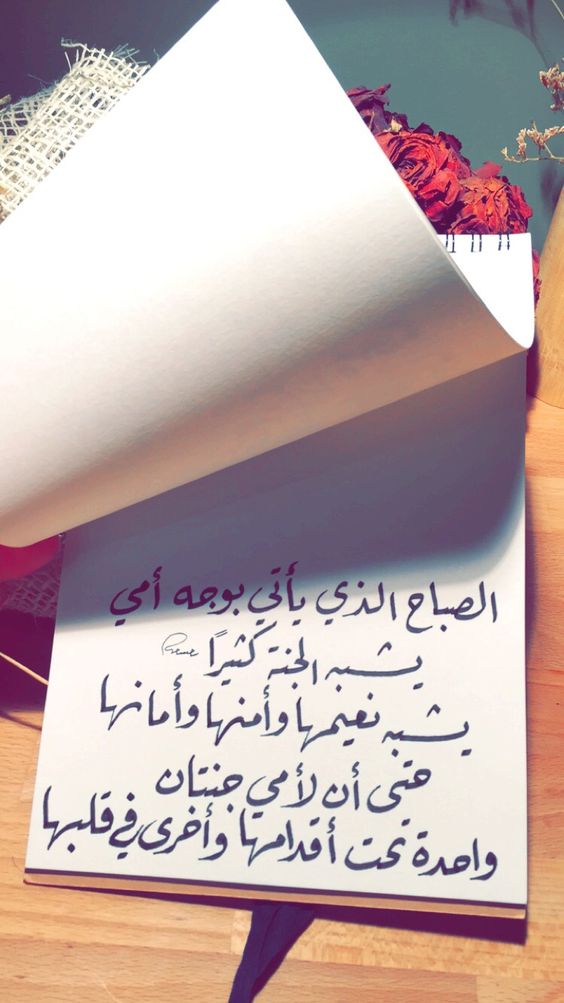 الصباح الذي يأتي بوجه أمي
يشبه الجنة كثيرًا
يشبه نعيمها وأمنها وأمانها
حتى أن لأمي جنتان
واحدة تحت أقدامها وأخرى في قلبها